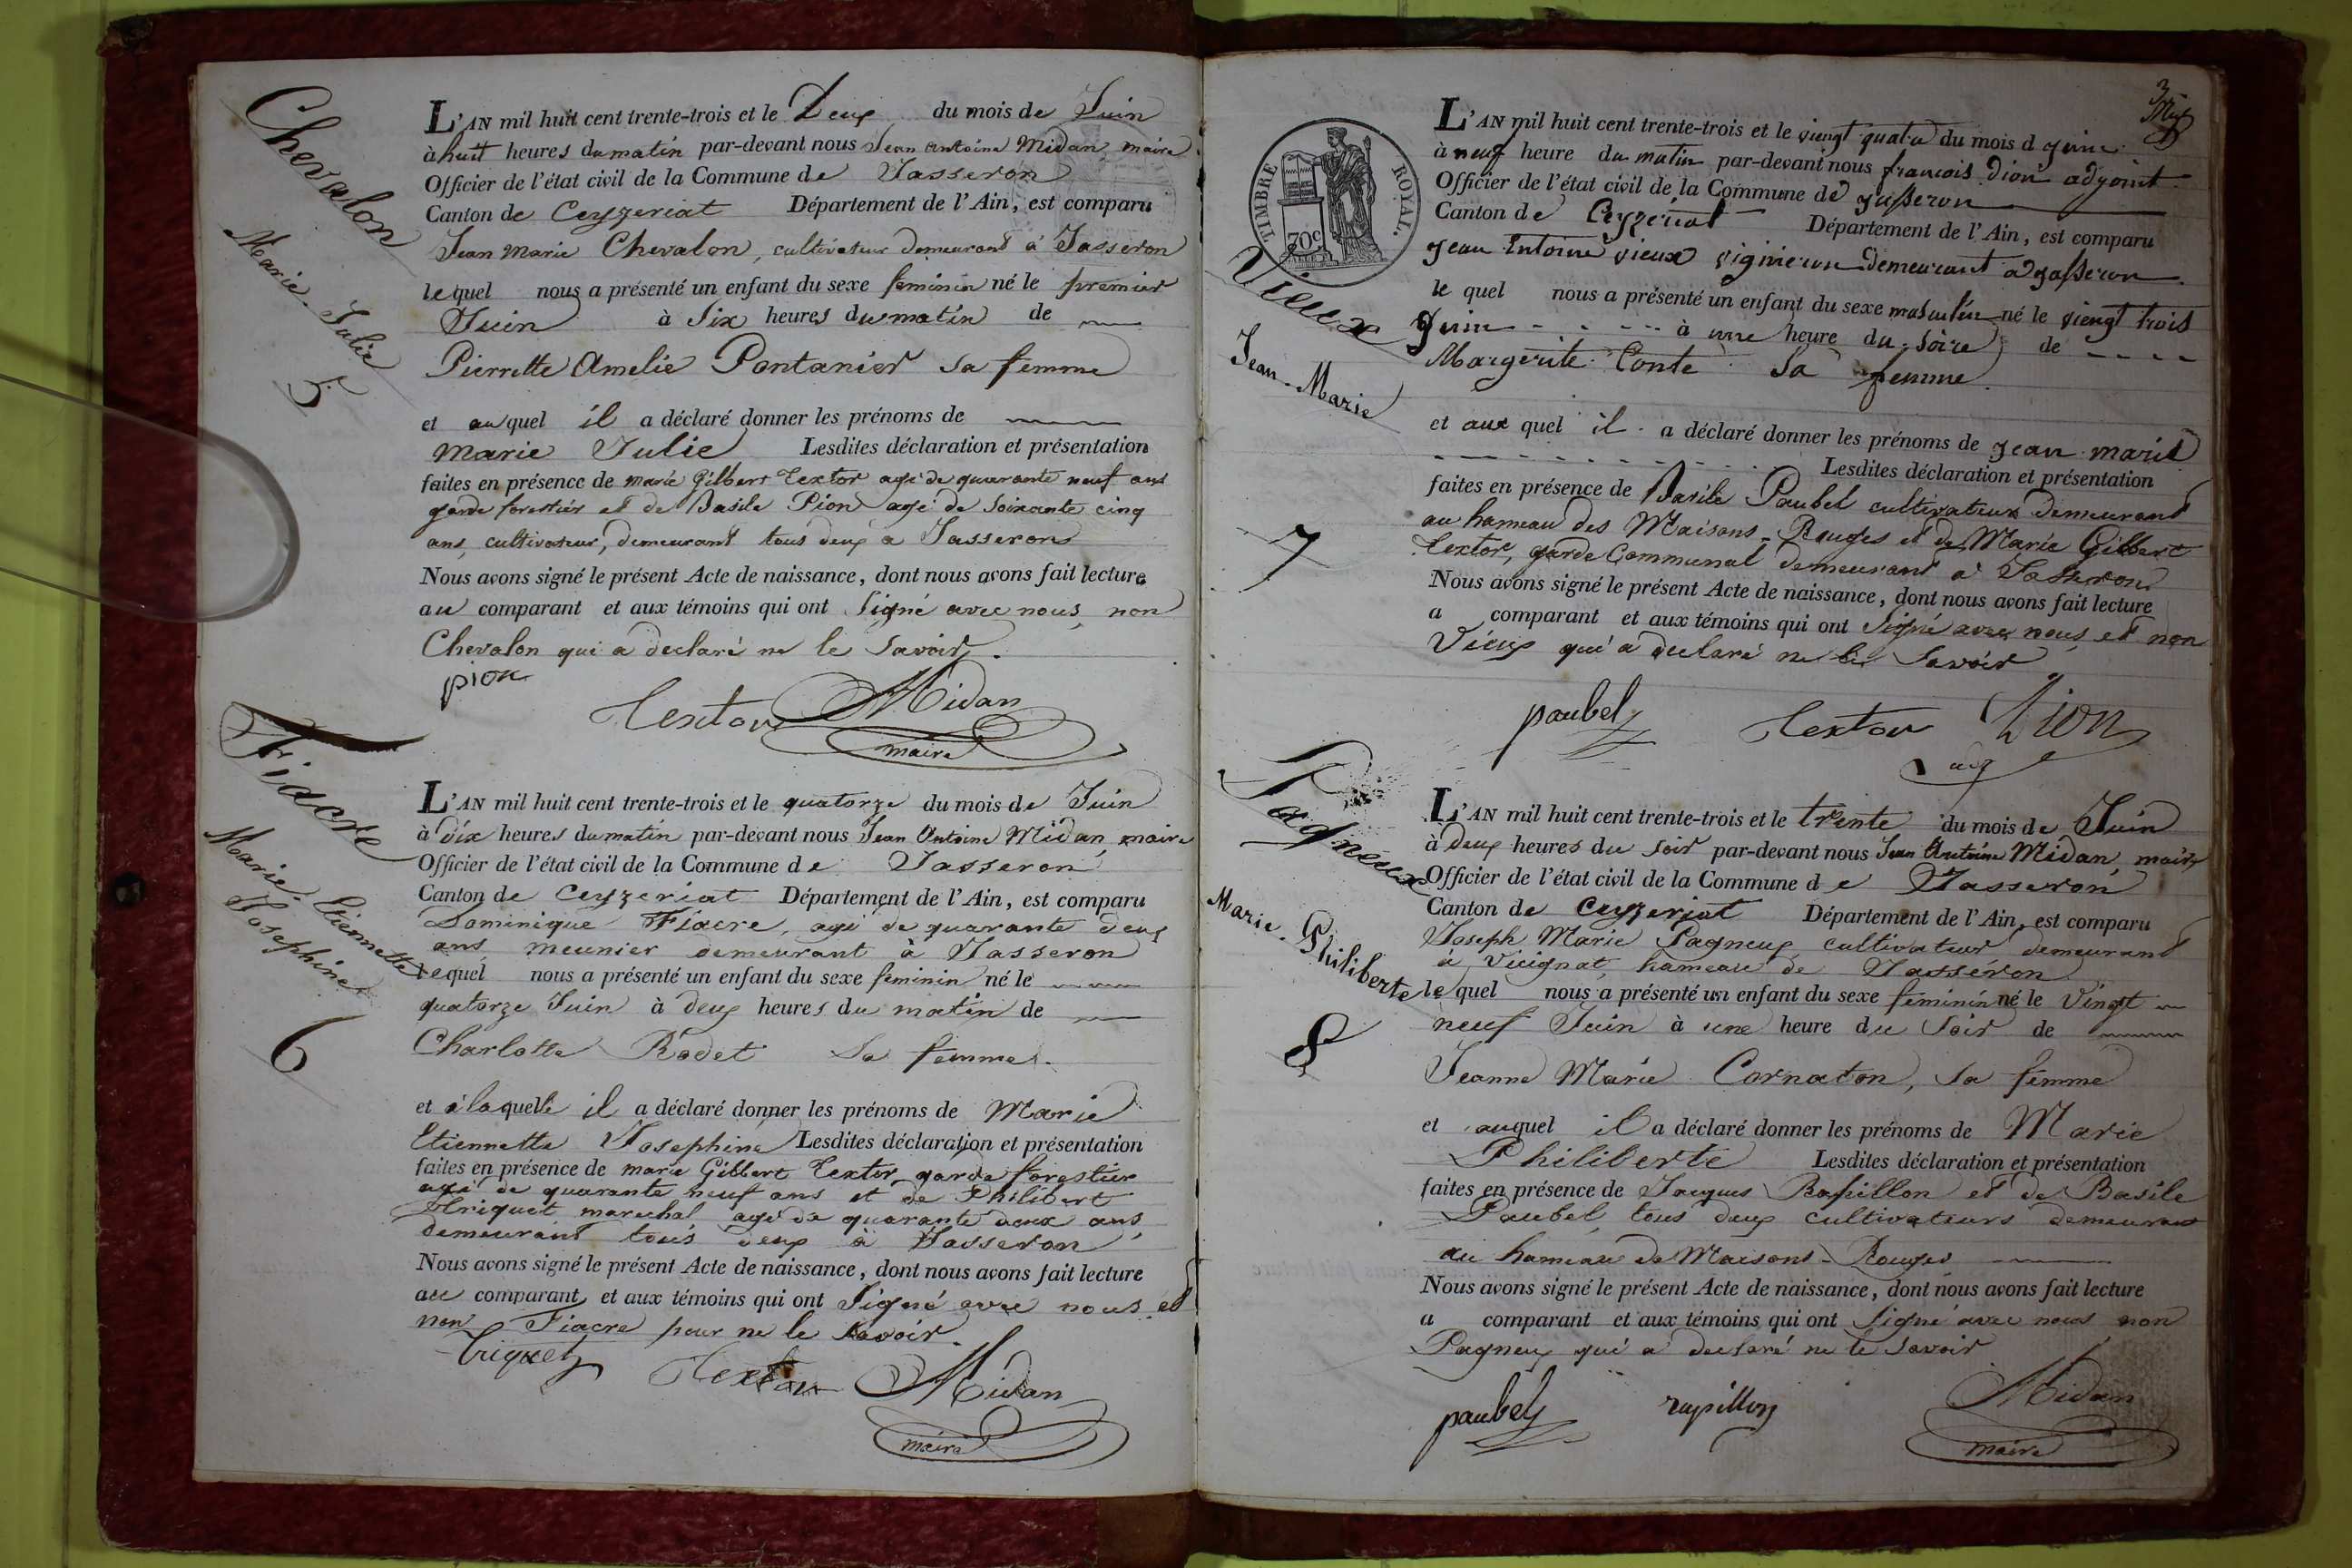 Chevalon
Marie-Julie
5
L'AN mil huit cent trente-trois et le Deux du mois de Juin
à huit heures du matin par-devant nous Jean antoine Midan, maire
Officier de l'état civil de la Commune de Jasseron
Canton de Ceyzeriat Département de l'Ain, est comparu
Jean Marie Chevalon, cultivateur demeurant à Jasseron
lequel nous a présenté un enfant du sexe feminin né le premier
Juin à Six heures du matin de
Pierrette Amelie Pontanier sa femme
et auquel il a déclaré donner les prénoms de
Marie Julie Lesdites déclaration et présentation
faites en présence de marie Gilbert Textor agé de quarante neuf ans
garde forestier et de Basile Pion agé de Soixante cinq
ans, cultivateur, demeurant tous deux à Jasseron
Nous avons signé le présent Acte de naissance, dont nous avons fait lecture
au comparant et aux témoins qui ont Signé avec nous, non
Chevalon qui a declaré ne le Savoir.
pion
Textor Midan
maire
Fiacre
Marie-Etiennette
Josephine
6
L'AN mil huit cent trente-trois et le quatorze du mois de Juin
à dix heures du matin par-devant nous Jean Antoine Midan, maire
Officier de l'état civil de la Commune de Jasseron
Canton de Ceyzeriat Département de l'Ain, est comparu
Dominique Fiacre, agé de quarante deux
ans, meunier demeurant à Jasseron
lequel nous a présenté un enfant du sexe feminin né le
quatorze Juin à deux heures du matin de
Charlotte Rodet Sa femme.
et à laquelle il a déclaré donner les prénoms de Marie
Etiennette Josephine Lesdites déclaration et présentation
faites en présence de marie Gilbert Textor garde forestier
agé de quarante neuf ans et de Philibert
Triquet marechal agé de quarante deux ans
demeurant tous deux à Jasseron
Nous avons signé le présent Acte de naissance, dont nous avons fait lecture
au comparant et aux témoins qui ont Signé avec nous et
non Fiacre pour ne le Savoir.
triquet Textor Midan
maire
3
TIMBRE ROYAL.
70c
Vieux
Jean-Marie
7
L'AN mil huit cent trente-trois et le viengt quatre du mois d juin
à neuf heure du matin par-devant nous francois dion adjoint
Officier de l'état civil de la Commune de jasseron
Canton de Ceyzeriat Département de l'Ain, est comparu
jean Entoine vieux vigineron demeurant a jasseron
le quel nous a présenté un enfant du sexe masculin né le viengt trois
juin à une heure du soire de
Margerite Conte Sa femme
et aux quel il a déclaré donner les prénoms de jean marie
Lesdites déclaration et présentation
faites en présence de Basile Paubel cultivateur demeurant
au hameau des Maisons-Rouges et de Marie Gilbert
Textor, garde Communal demeurant à Jasseron
Nous avons signé le présent Acte de naissance, dont nous avons fait lecture
a comparant et aux témoins qui ont Signé avec nous, et non
Vieux qui a declaré ne le Savoir
paubel Textor Dion
adj
Pagneux
Marie-Philiberte
8
L'AN mil huit cent trente-trois et le trente du mois de Juin
à deux heures du soir par-devant nous Jean Antoine Midan, maire
Officier de l'état civil de la Commune de Jasseron
Canton de Ceyzeriat Département de l'Ain, est comparu
Joseph Marie Pagneux cultivateur demeurant
à Vicignat, hameau de Jasseron
le quel nous a présenté un enfant du sexe feminin né le Vingt
neuf Juin à une heure du Soir de
Jeanne Marie Cornaton, Sa femme
et auquel il a déclaré donner les prénoms de Marie
Philiberte Lesdites déclaration et présentation
faites en présence de Jacques Rapillon et de Basile
Paubel, tous deux cultivateurs demeurant
au hameau de Maisons-Rouges
Nous avons signé le présent Acte de naissance, dont nous avons fait lecture
a comparant et aux témoins qui ont Signé avec nous non
Pagneux qui a declaré ne le Savoir
paubel rapillon Midan
maire